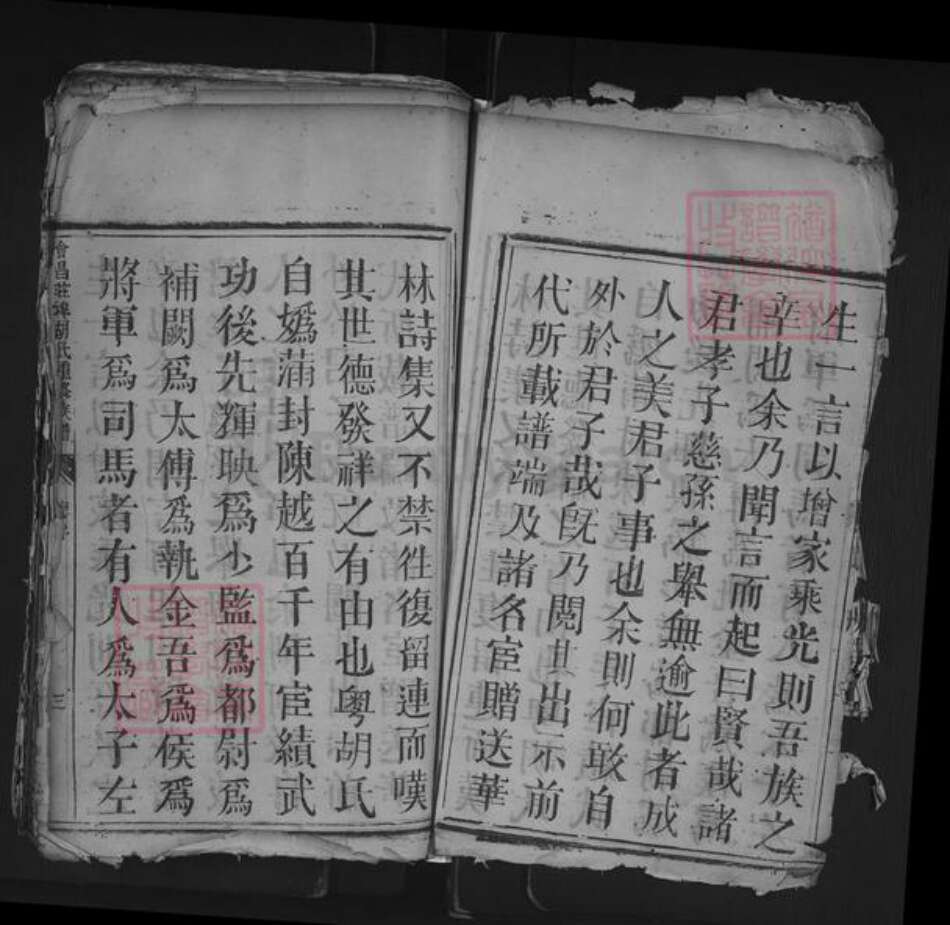 生一言以增家乘光則吾族之
幸也余乃聞言而起曰賢哉諸
君孝子慈孫之舉無逾此者成
人之美君子事也余則何敢自
外於君子哉旣乃閱其出示前
代所載譜端及諸名宦贈送華
林詩集又不禁徃復留連而嘆
其世德發祥之有由也粵胡氏
自嬀滿封陳越百千年宦績武
功後先輝映爲少監爲都尉爲
補闕爲太傅爲執金吾爲侯爲
將軍爲司馬者有人爲太子左
會昌莊埠胡氏重修族譜
三